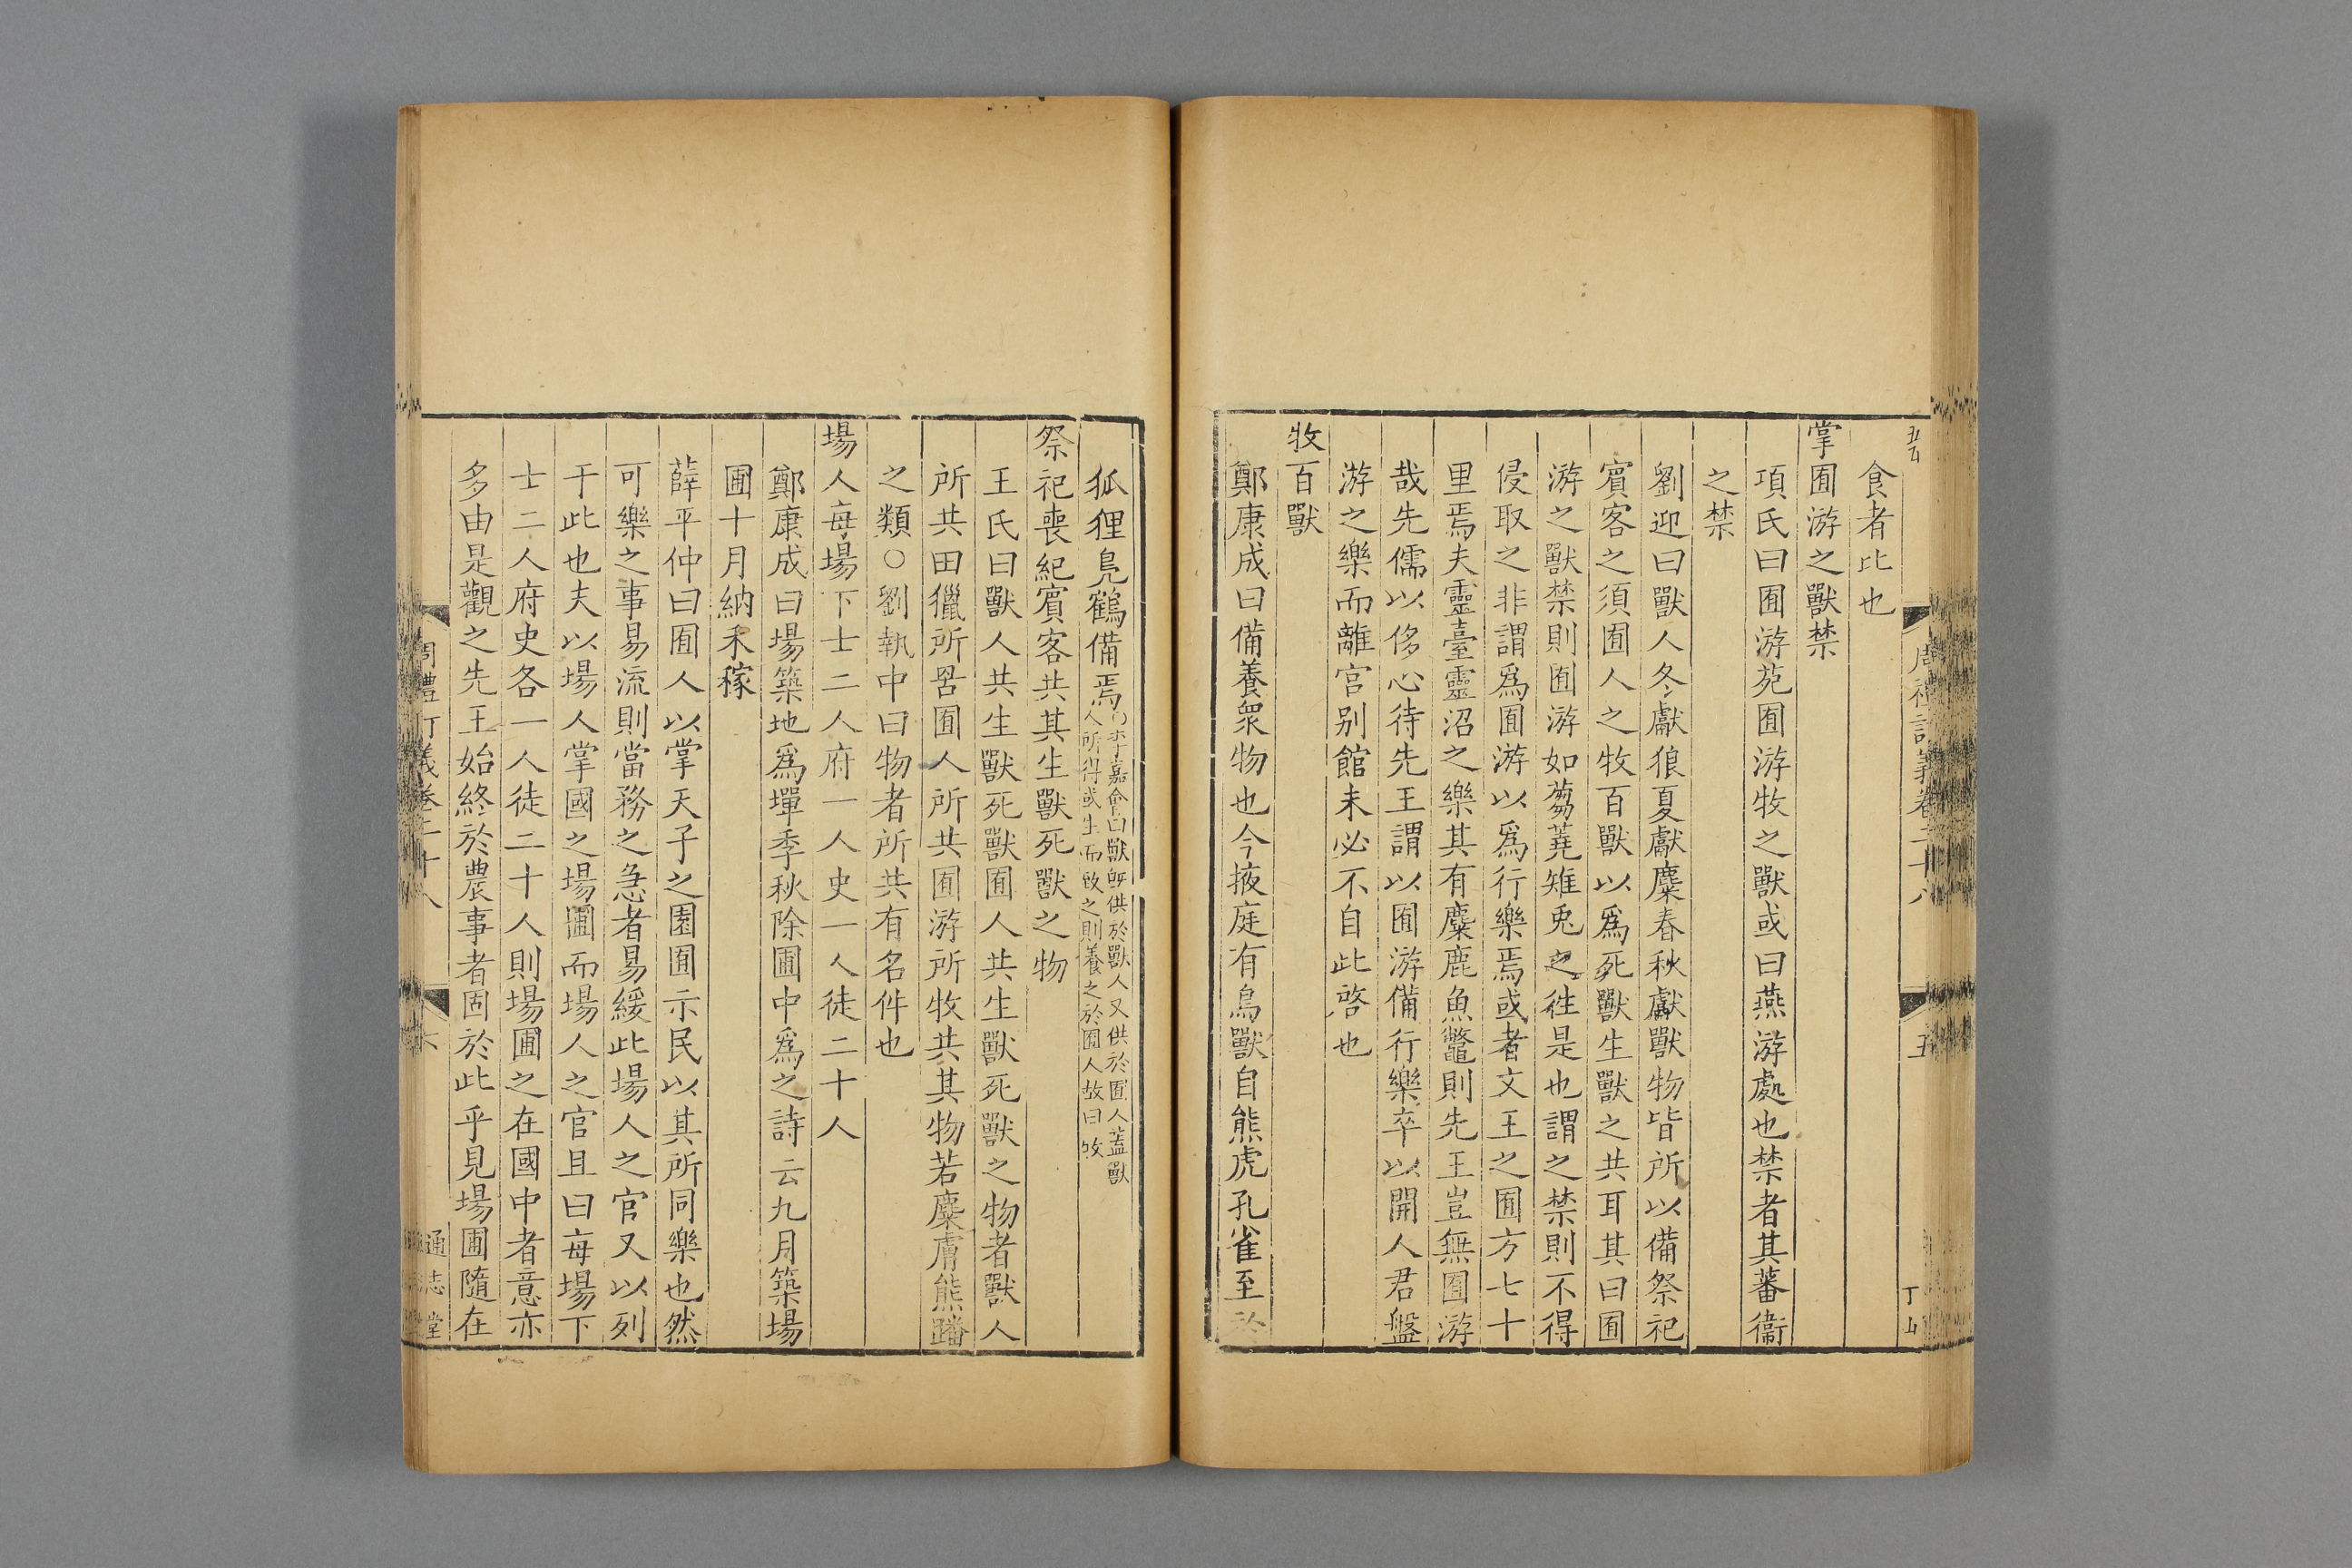 食者比也
掌囿游之獸禁
項氏曰囿游苑囿游牧之獸或曰燕游處也禁者其蕃衞
之禁
劉迎曰獸人冬獻狼夏獻麋春秋獻獸物皆所以備祭祀
賓客之須囿人之牧百獸以爲死獸生獸之共耳其曰囿
游之獸禁則囿游如芻蕘雉兎之徃是也謂之禁則不得
侵取之非謂爲囿游以爲行樂焉或者文王之囿方七十
里焉夫靈臺靈沼之樂其有麋鹿魚鼈則先王豈無囿游
哉先儒以侈心待先王謂以囿游備行樂卒以開人君盤
游之樂而離宮别館未必不自此啓也
牧百獸
鄭康成曰備養衆物也今掖庭有鳥獸自熊虎孔雀至於
狐狸鳧鶴備焉
李嘉會曰獸旣供於獸人又供於囿人蓋獸
人所得或生而致之則養之於囿人故曰牧
祭祀喪紀賓客共其生獸死獸之物
王氏曰獸人共生獸死獸囿人共生獸死獸之物者獸人
所共田獵所罟囿人所共囿游所牧共其物若麋膚熊蹯
之類○劉執中曰物者所共有名件也
場人每場下士二人府一人史一人徒二十人
鄭康成曰場築地爲墠季秋除圃中爲之詩云九月築場
圃十月納禾稼
薛平仲曰囿人以掌天子之園囿示民以其所同樂也然
可樂之事易流則當務之急者易緩此場人之官又以列
于此也夫以場人掌國之場圃而場人之官且曰每場下
士二人府史各一人徒二十人則場圃之在國中者意亦
多由是觀之先王始終於農事者固於此乎見場圃隨在
周禮訂義卷二十八
六
通志堂